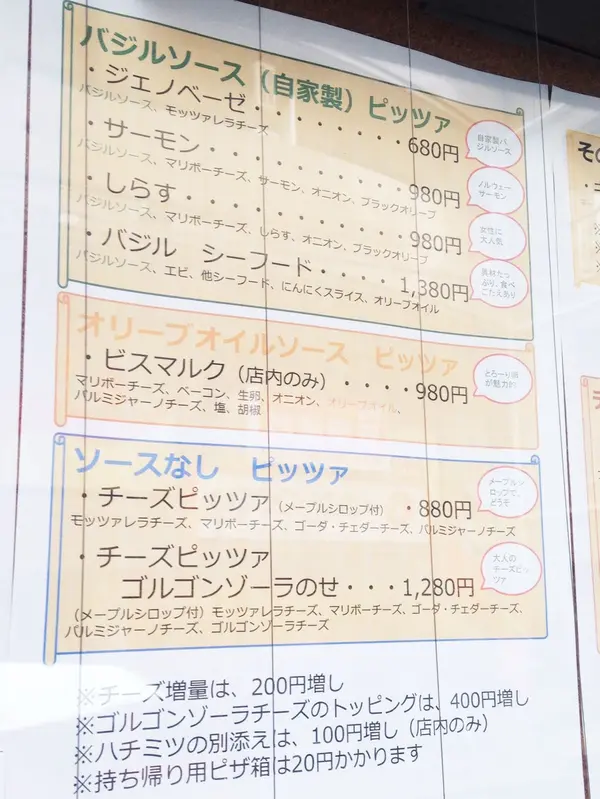 バジルソース（自家製）ピッツァ
・ジェノベーゼ・・・・・・・・・680円
バジルソース、モッツァレラチーズ
自家製バジルソース
・サーモン・・・・・・・・・・・980円
バジルソース、マリボーチーズ、サーモン、オニオン、ブラックオリーブ
ノルウェーサーモン
・しらす・・・・・・・・・・・・980円
バジルソース、マリボーチーズ、しらす、オニオン、ブラックオリーブ
女性に大人気
・バジル　シーフード・・・・1,380円
バジルソース、エビ、他シーフード、にんにくスライス、オリーブオイル
具材たっぷり、食べごたえあり
オリーブオイルソース　ピッツァ
・ビスマルク（店内のみ）・・・・980円
マリボーチーズ、ベーコン、生卵、オニオン、オリーブオイル、
パルミジャーノチーズ、塩、胡椒
とろーり卵が魅力的
ソースなし　ピッツァ
・チーズピッツァ（メープルシロップ付）・880円
モッツァレラチーズ、マリボーチーズ、ゴーダ・チェダーチーズ、パルミジャーノチーズ
メープルシロップで、どうぞ
・チーズピッツァ
ゴルゴンゾーラのせ・・・1,280円
（メープルシロップ付）モッツァレラチーズ、マリボーチーズ、ゴーダ・チェダーチーズ、
パルミジャーノチーズ、ゴルゴンゾーラチーズ
大人のチーズピッツァ
※チーズ増量は、200円増し
※ゴルゴンゾーラチーズのトッピングは、400円増し
※ハチミツの別添えは、100円増し（店内のみ）
※持ち帰り用ピザ箱は20円かかります